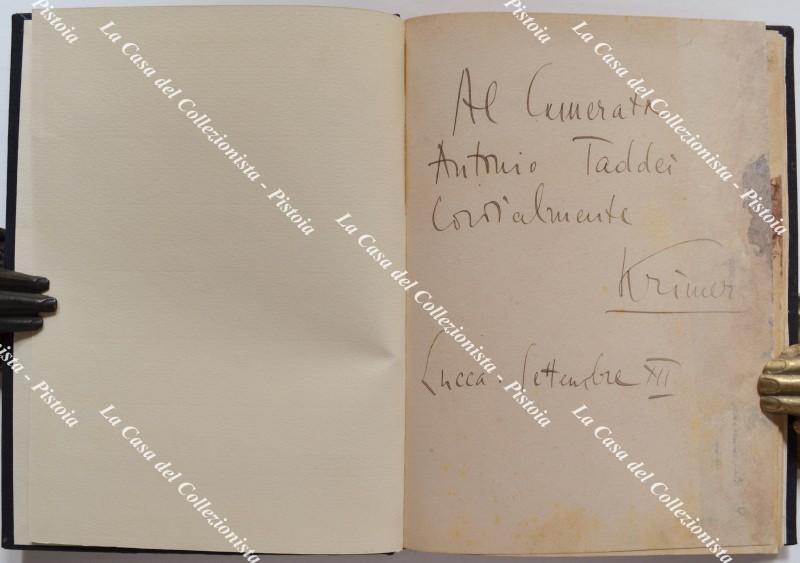 Al Camerata
Antonio Taddei
Cordialmente
Krimer
Lucca - Settembre XII
La Casa del Collezionista - Pistoia
La Casa del Collezionista - Pistoia
La Casa del Collezionista - Pistoia
La Casa del Collezionista - Pistoia
La Casa del Collezionista
La Casa del Collezionista
Pistoia
Pistoia
Pistoia
Pistoia